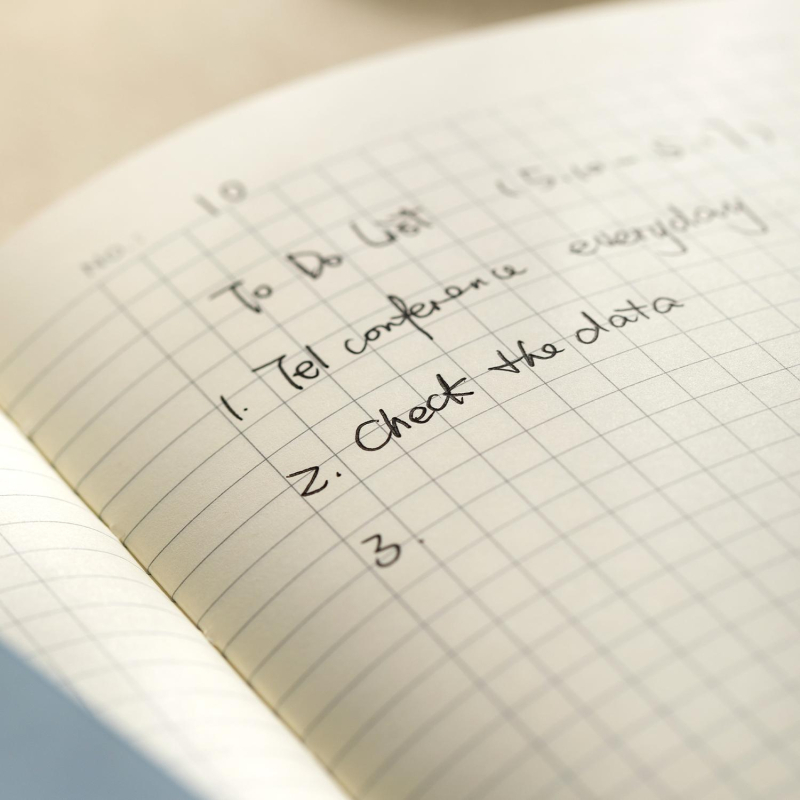 NO.: 10
To Do List
1. Tel conference everyday
2. Check the data
3.